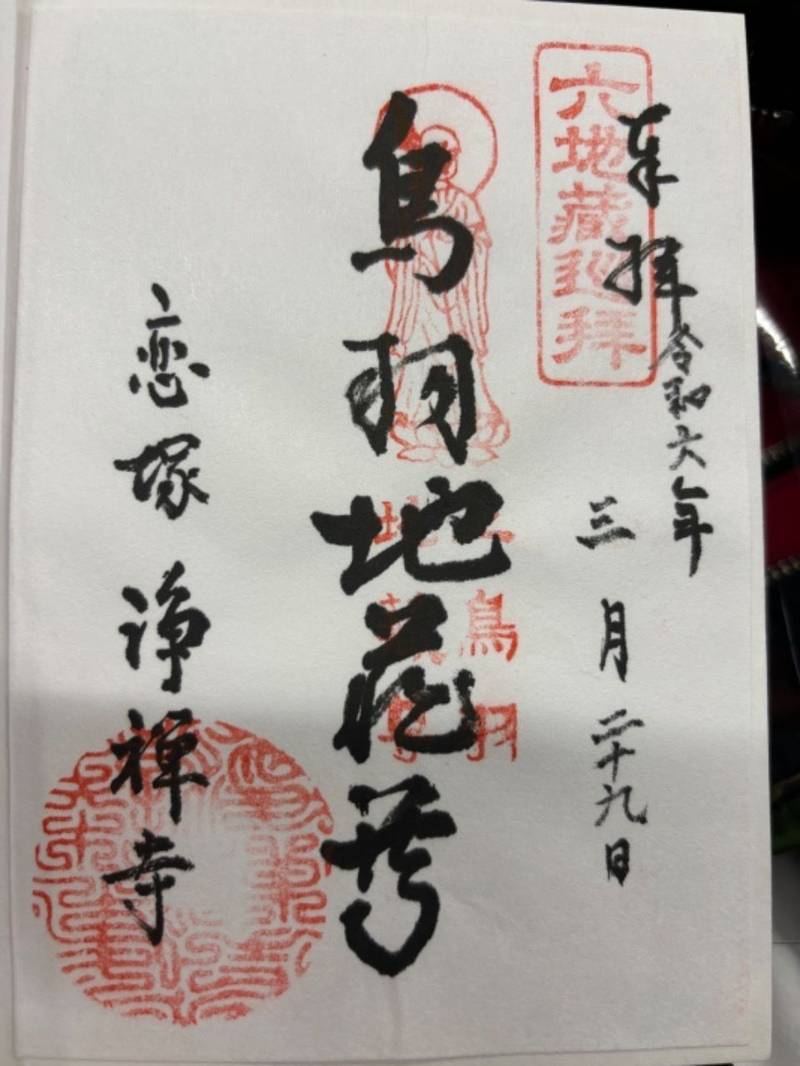 奉拝
令和六年
三月二十九日
六地藏巡拝
鳥羽地蔵尊
鳥羽
恋塚 浄禅寺